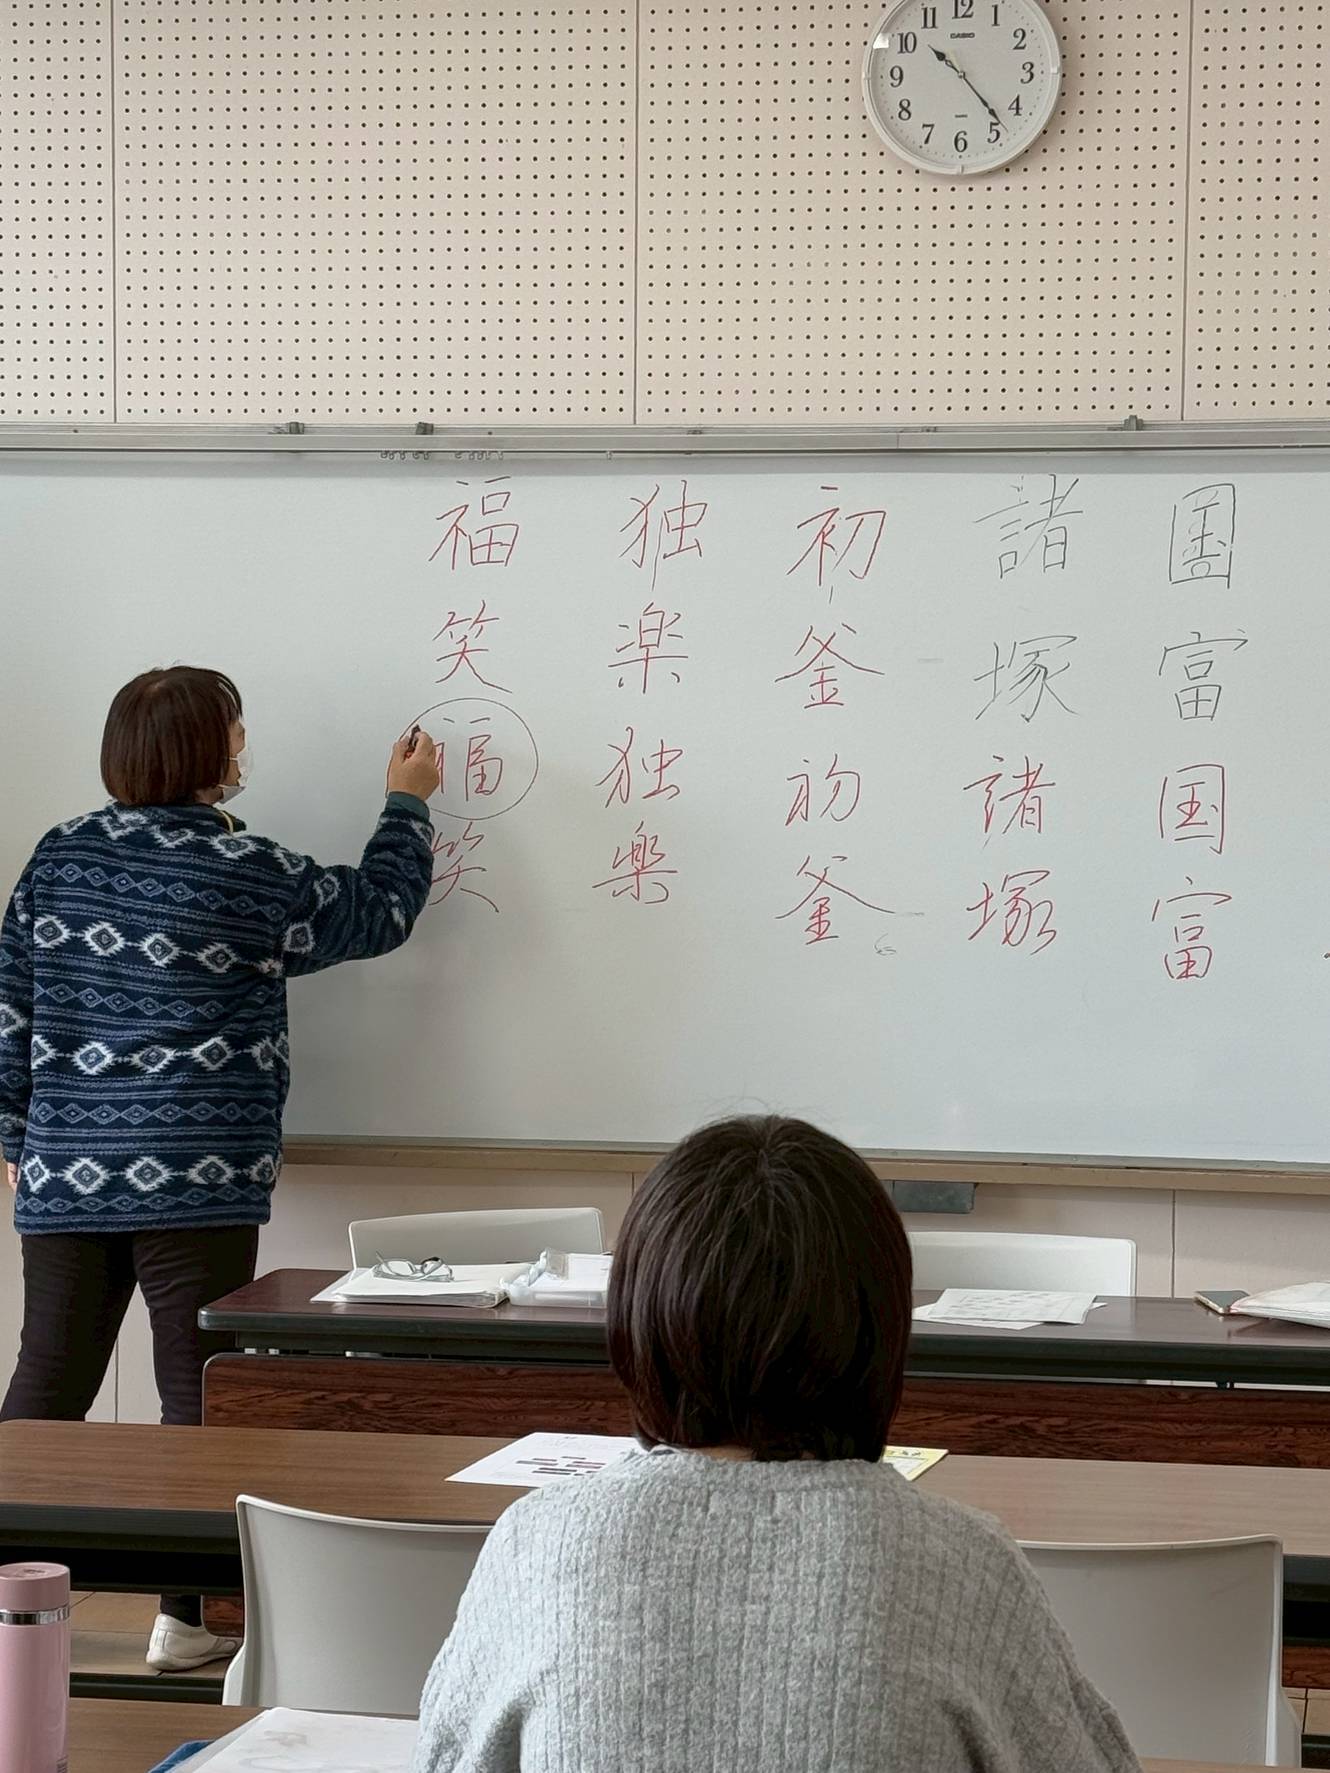 国富国富
諸塚諸塚
初釜初釜
独楽独楽
福笑福笑
12
1
2
3
4
5
6
7
8
9
10
11
CASIO